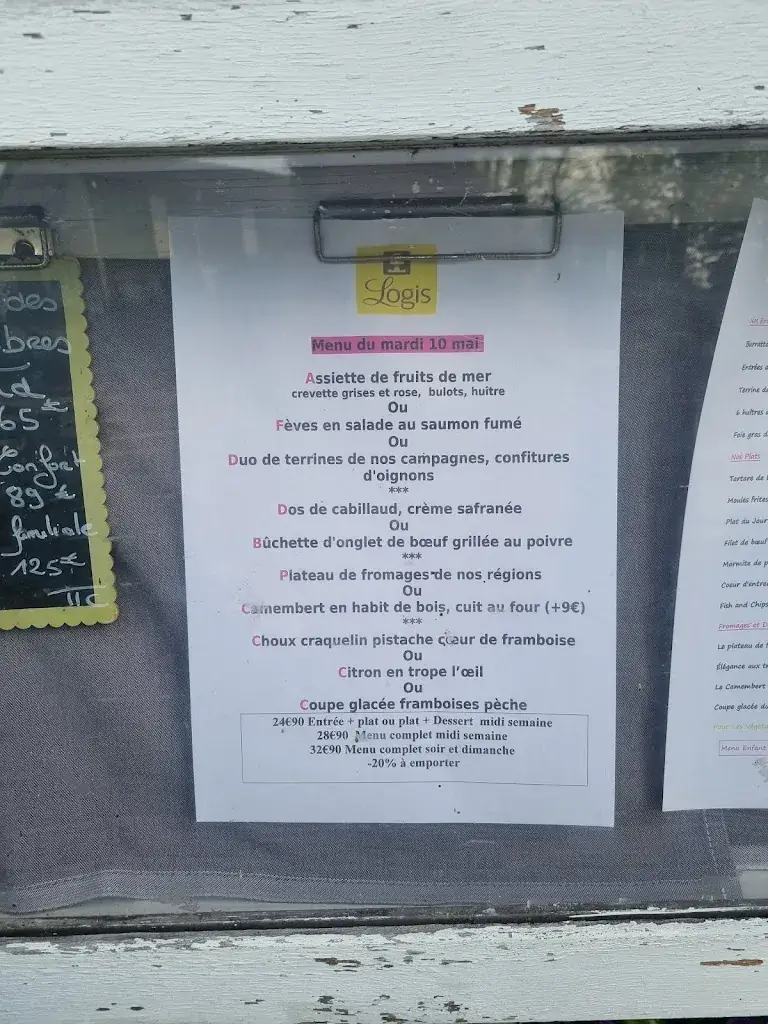 des
bres
65 €
confort
89 €
familiale
125 €
TTC
Logis
Menu du mardi 10 mai
Assiette de fruits de mer
crevette grises et rose, bulots, huître
Ou
Fèves en salade au saumon fumé
Ou
Duo de terrines de nos campagnes, confitures
d'oignons
***
Dos de cabillaud, crème safranée
Ou
Bûchette d'onglet de bœuf grillée au poivre
***
Plateau de fromages de nos régions
Ou
Camembert en habit de bois, cuit au four (+9€)
***
Choux craquelin pistache cœur de framboise
Ou
Citron en trope l'œil
Ou
Coupe glacée framboises pèche
24€90 Entrée + plat ou plat + Dessert midi semaine
28€90 Menu complet midi semaine
32€90 Menu complet soir et dimanche
-20% à emporter
Nos
Burratta
Entrées
Terrine de
6 huîtres
Foie gras
Nos Plats
Tartare de
Moules frites
Plat du Jour
Filet de bœuf
Marmite de
Coeur d'entre
Fish and Chips
Fromages et
Le plateau de
Élégance aux
Le Camembert
Coupe glacée
Pour Les
Menu Enfant